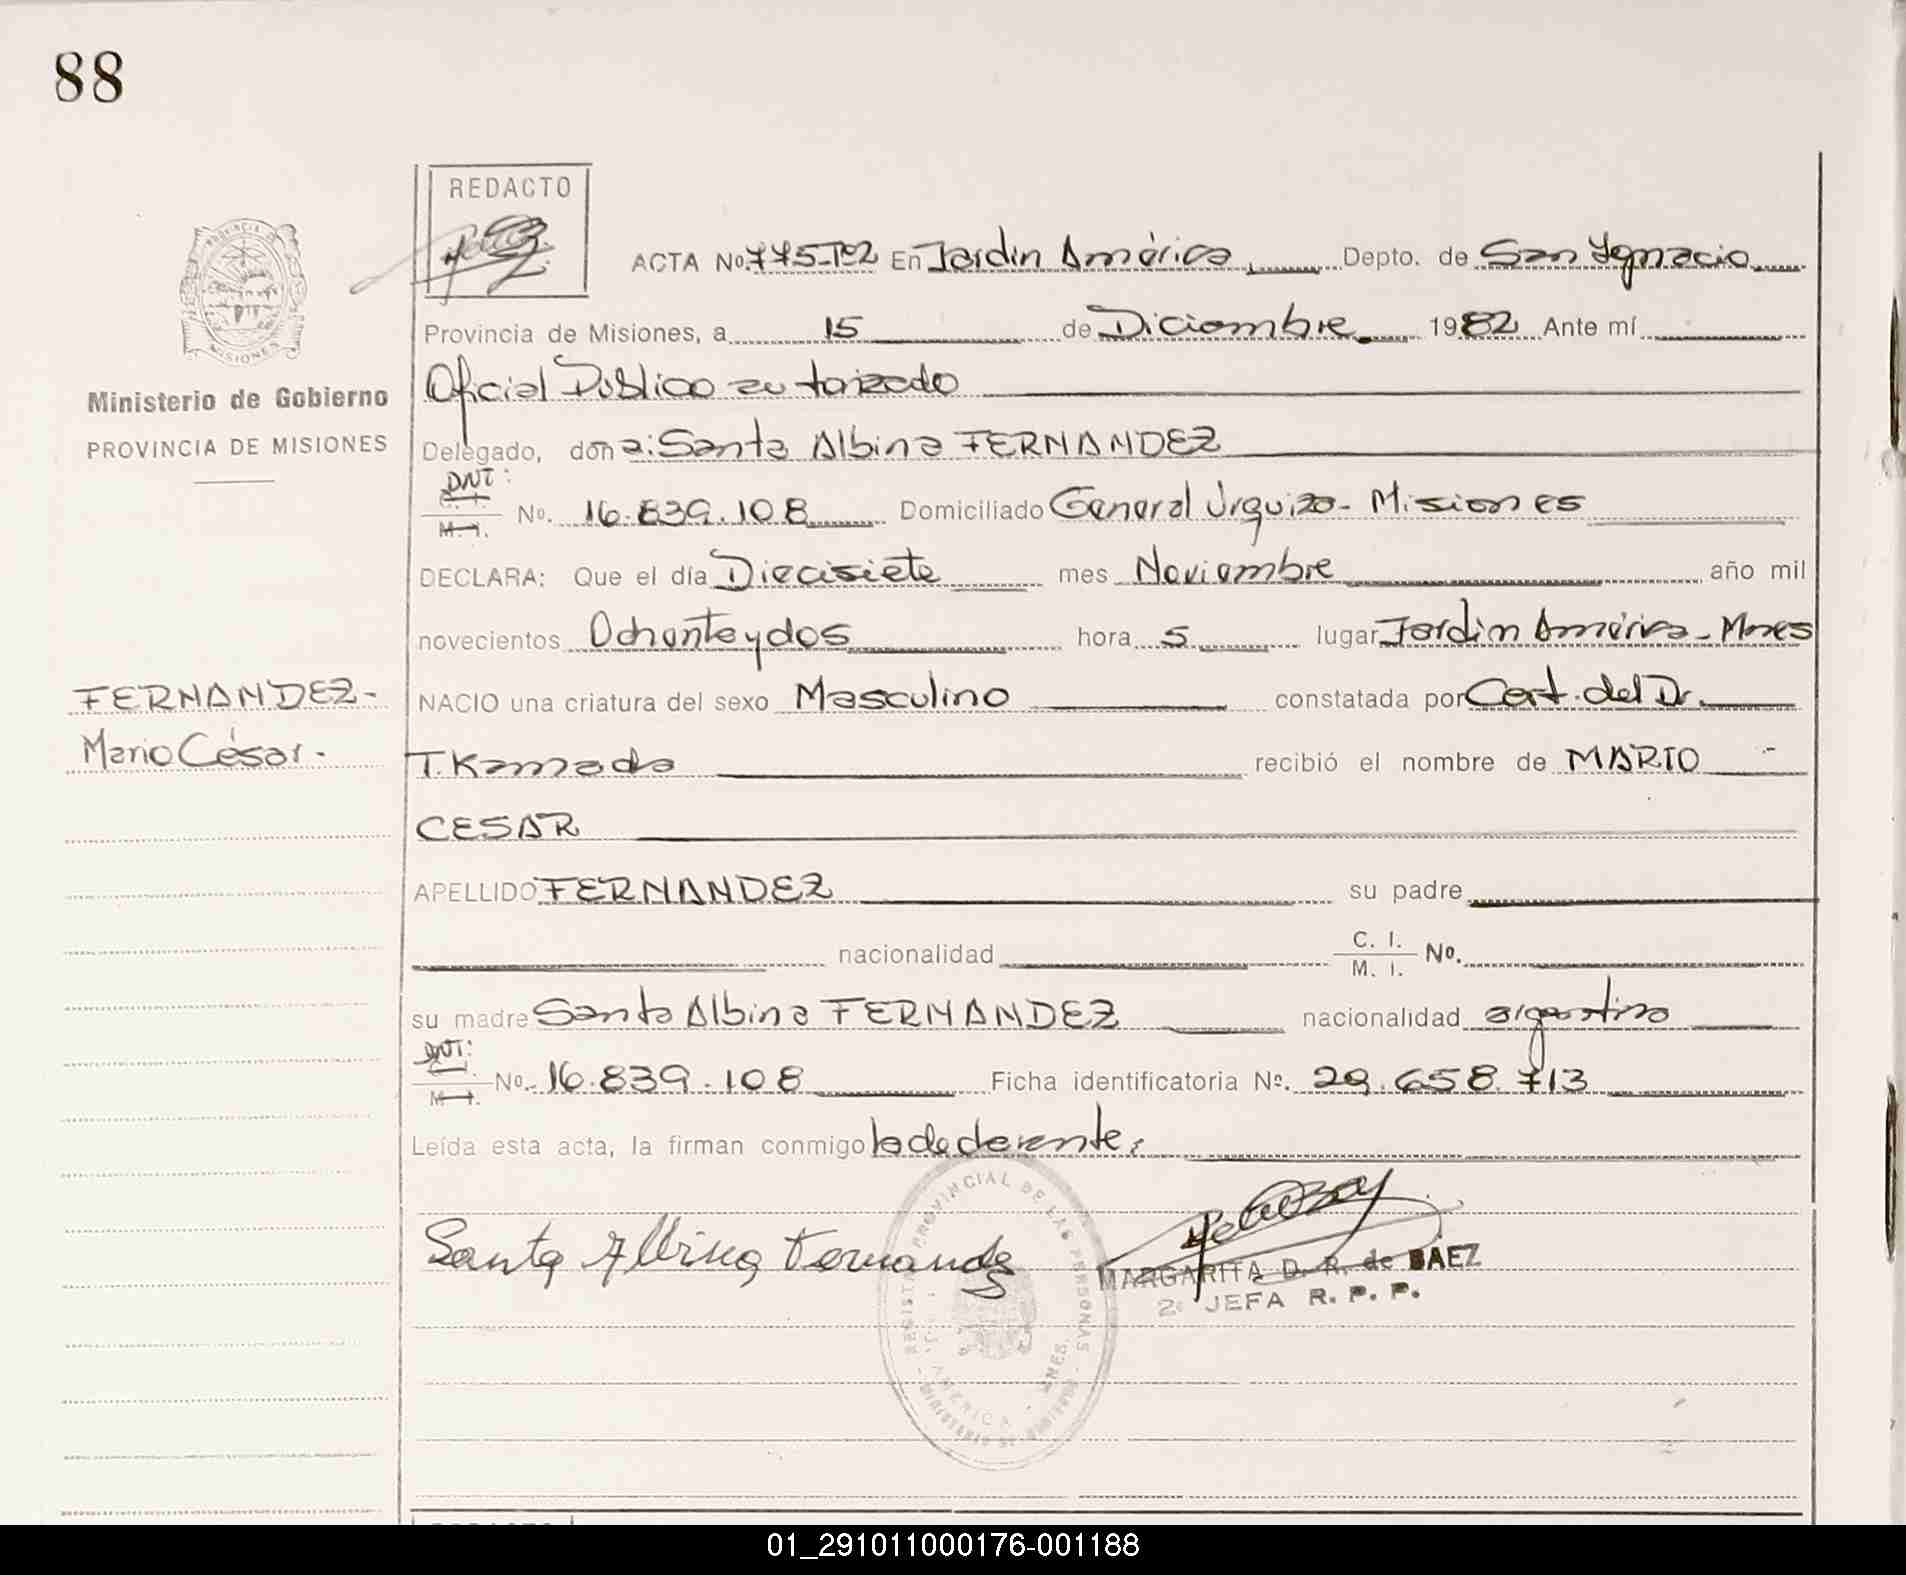 88
REDACTO
PROVINCIA DE
MISIONES
Ministerio de Gobierno
PROVINCIA DE MISIONES
ACTA No. 775-Tº2 En Jardin América Depto. de San Ygnacio
Provincia de Misiones, a 15 de Diciembre 1982 Ante mí
Oficial Publico autorizado
Delegado, don a: Santa Albina FERNANDEZ
DNI:
C. I.
M. I. No. 16.839.108 Domiciliado General Urquiza - Misiones
DECLARA: Que el día Diecisiete mes Noviembre año mil
novecientos Ochenta y dos hora 5 lugar Jardin América - Mnes
FERNANDEZ -
Mario César -
NACIO una criatura del sexo Masculino constatada por Cert. del Dr.
T. Kamada recibió el nombre de MARIO -
CESAR
APELLIDO FERNANDEZ su padre
nacionalidad C. I.
M. I. No.
su madre Santa Albina FERNANDEZ nacionalidad argentina
DNI:
C. I.
M. I. No. 16.839.108 Ficha identificatoria Nº. 29.658.713
Leída esta acta, la firman conmigo la declarante;
Santa Albina Fernandez
MARGARITA D. R. de BAEZ
2º JEFA R. P. P.
REGISTRO PROVINCIAL DE LAS PERSONAS
AMERICA - MNES
MINISTERIO DE GOBIERNO
01_291011000176-001188